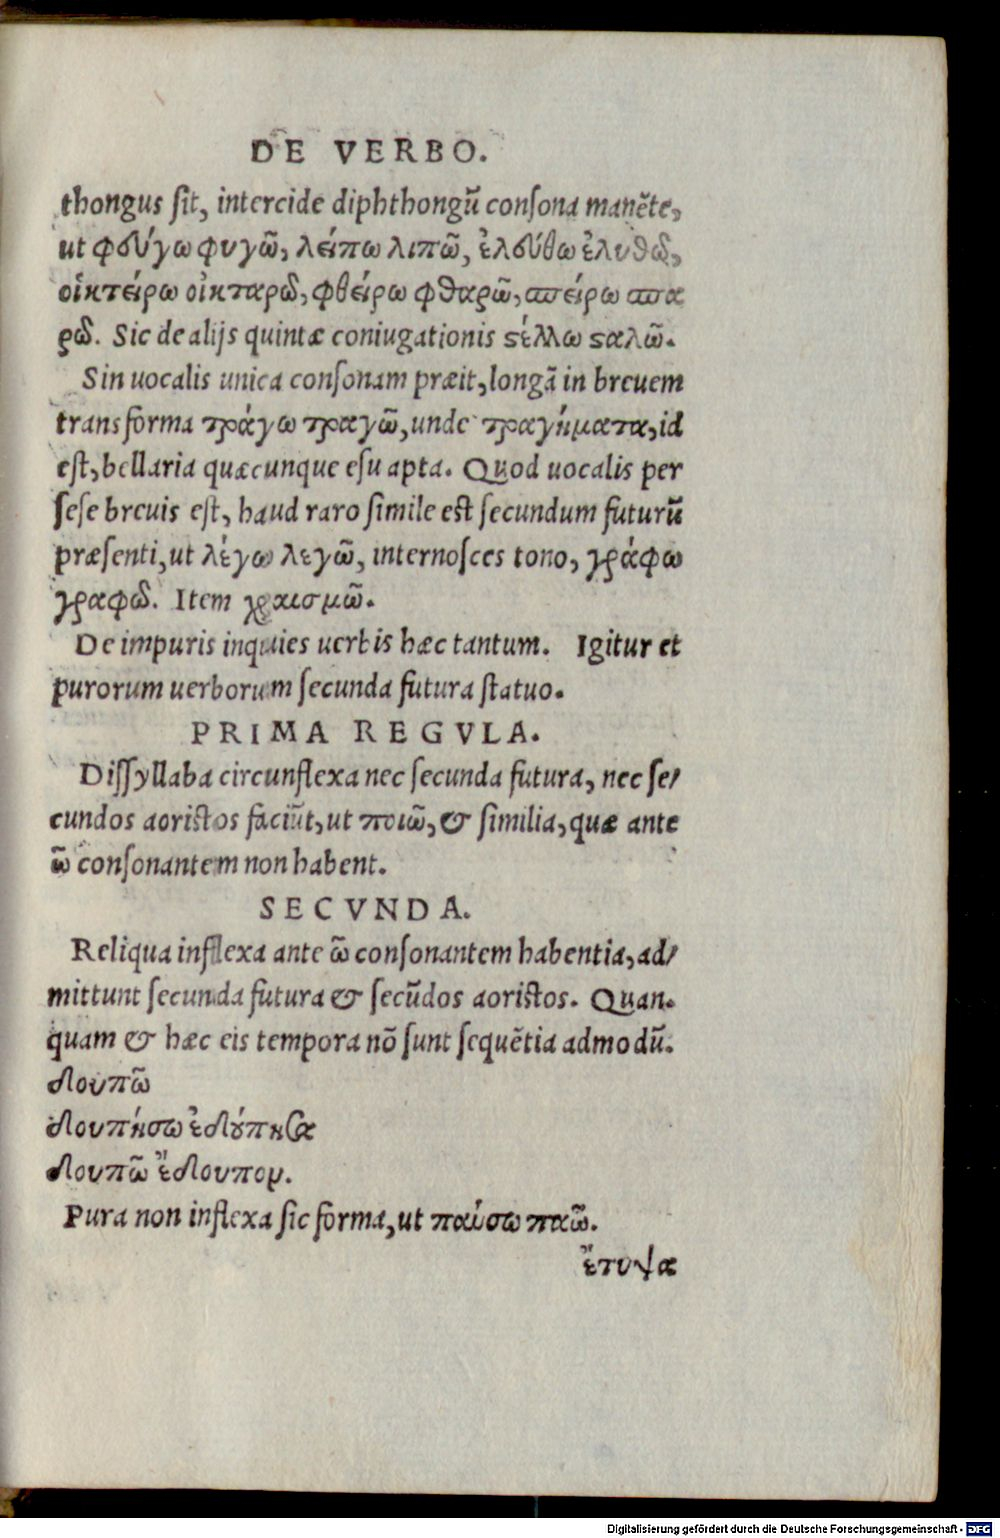 DE VERBO.
thongus ſit, intercide diphthongũ conſona manẽte,
ut φεύγω φυγῶ, λείπω λιπῶ, ἐλεύθω ἐλυθῶ,
οἰκτείρω οἰκταρῶ, φθείρω φθαρῶ, σπείρω σπα
ρῶ. Sic de alijs quintæ coniugationis ϛέλλω ϛαλῶ.
Sin uocalis unica conſonam præit, longã in breuem
transforma τράγω τραγῶ, unde τραγήματα, id
eſt, bellaria quæcunque eſu apta. Quod uocalis per
ſeſe breuis eſt, haud raro ſimile eſt ſecundum futurũ
præſenti, ut λέγω λεγῶ, internoſces tono, γράφω
γραφῶ. Item χραισμῶ.
De impuris inquies uerbis hæc tantum. Igitur et
purorum uerborum ſecunda futura ſtatuo.
PRIMA REGVLA.
Diſſyllaba circunflexa nec ſecunda futura, nec ſe/
cundos aoriſtos faciũt, ut ποιῶ, & ſimilia, quæ ante
ῶ conſonantem non habent.
SECVNDA.
Reliqua inflexa ante ῶ conſonantem habentia, ad/
mittunt ſecunda futura & ſecũdos aoriſtos. Quan-
quam & hæc eis tempora nõ ſunt ſequẽtia admodũ.
δουπῶ
δουπήσω ἐδούπησα
δουπῶ ἔδουπον.
Pura non inflexa ſic forma, ut παύσω παῶ.
ἔτυψα
Digitalisierung gefördert durch die Deutsche Forschungsgemeinschaft - DFG